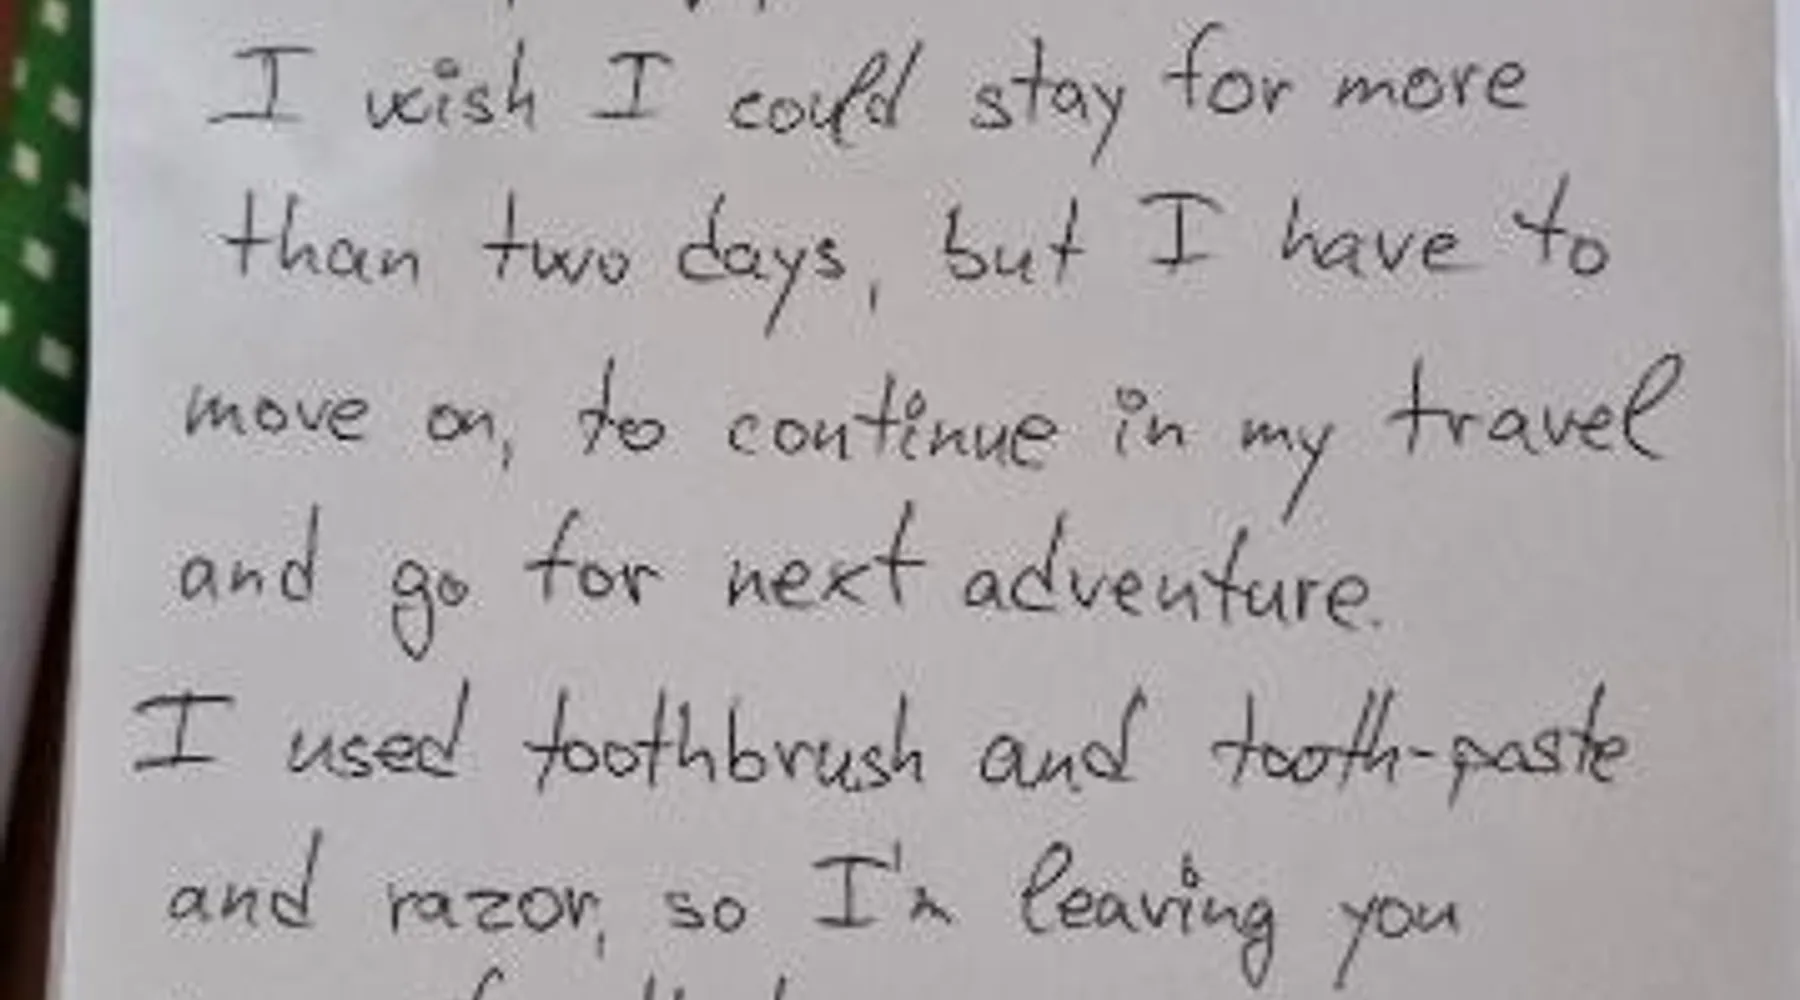 I wish I could stay for more
than two days, but I have to
move on, to continue in my travel
and go for next adventure.
I used toothbrush and tooth-paste
and razor, so I'm leaving you